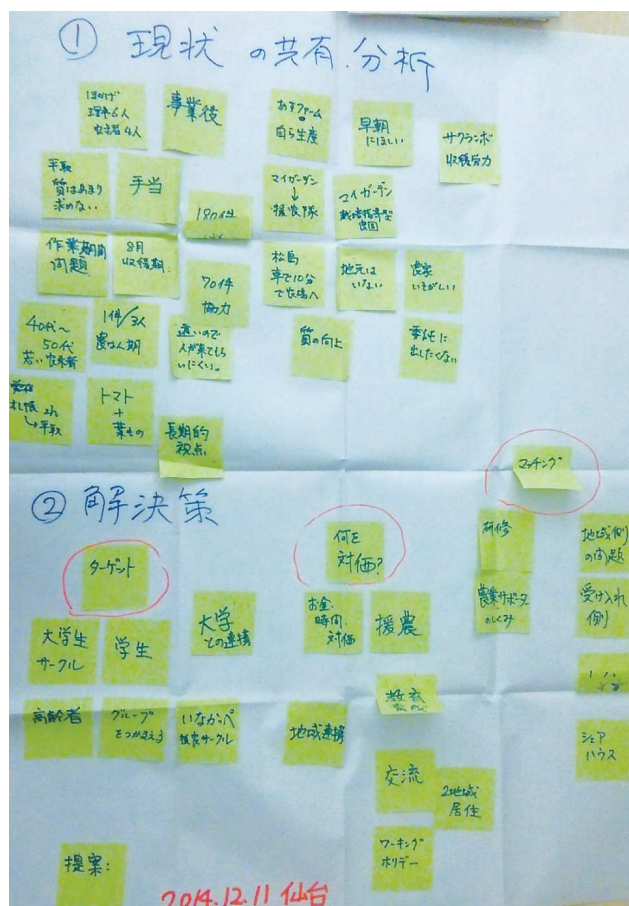 ① 現状の共有.分析
事業役
あすファーム
自ら生産
早朝
にほしい
サクランボ
収穫労力
手取
質はあまり
求めない
手当
180件
マイガーデン
↓
援農隊
マイガーデン
栽培指導型
農園
作業期間
問題
8月
収穫期
70件
協力
松島
車で10分
で農場へ
地元は
いない
農家
いそがしい
40代〜
50代
若い農業者
1件/3人
農は人期
遠いので
人が来てもら
いにくい。
質の向上
委託に
出したくない
トマト
+
葉もの
長期的
視点
マッチング
② 解決策
ターゲット
何を
対価?
研修
地域側
の問題
大学生
サークル
学生
大学
との連携
お金
時間
対価
援農
農業サポーター
のしくみ
受け入れ
側
高齢者
グループ
をつかまえる
いなかっぺ
援農サークル
地域連携
教育
交流
2地域
居住
シェア
ハウス
ワーキング
ホリデー
提案:
2014.12.11 仙台